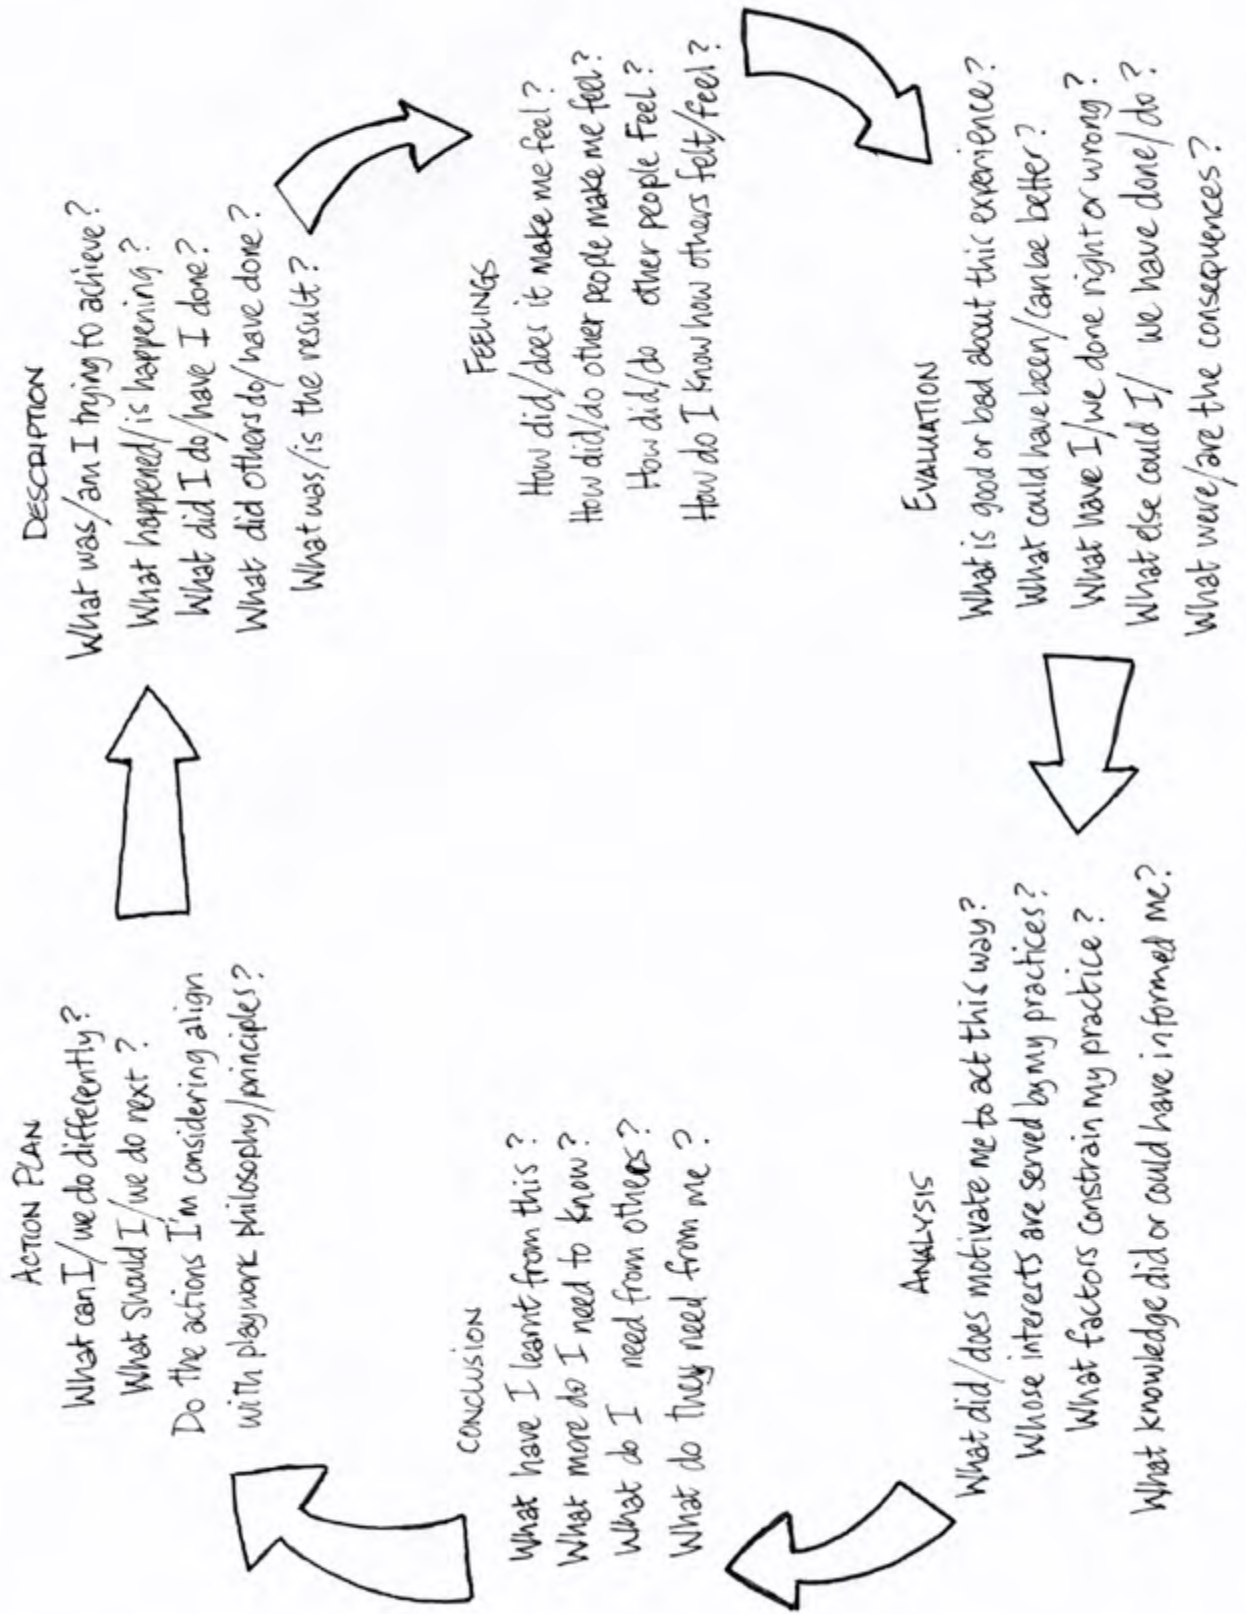 DESCRIPTION
What was/am I trying to achieve?
What happened/is happening?
What did I do/have I done?
What did others do/have done?
What was/is the result?
FEELINGS
How did/does it make me feel?
How did/do other people make me feel?
How did/do other people feel?
How do I know how others felt/feel?
EVALUATION
What is good or bad about this experience?
What could have been/can be better?
What have I/we done right or wrong?
What else could I/we have done/do?
What were/are the consequences?
ANALYSIS
What did/does motivate me to act this way?
Whose interests are served by my practices?
What factors constrain my practice?
What knowledge did or could have informed me?
CONCLUSION
What have I learnt from this?
What more do I need to know?
What do I need from others?
What do they need from me?
ACTION PLAN
What can I/we do differently?
What should I/we do next?
Do the actions I'm considering align
with playwork philosophy/principles?